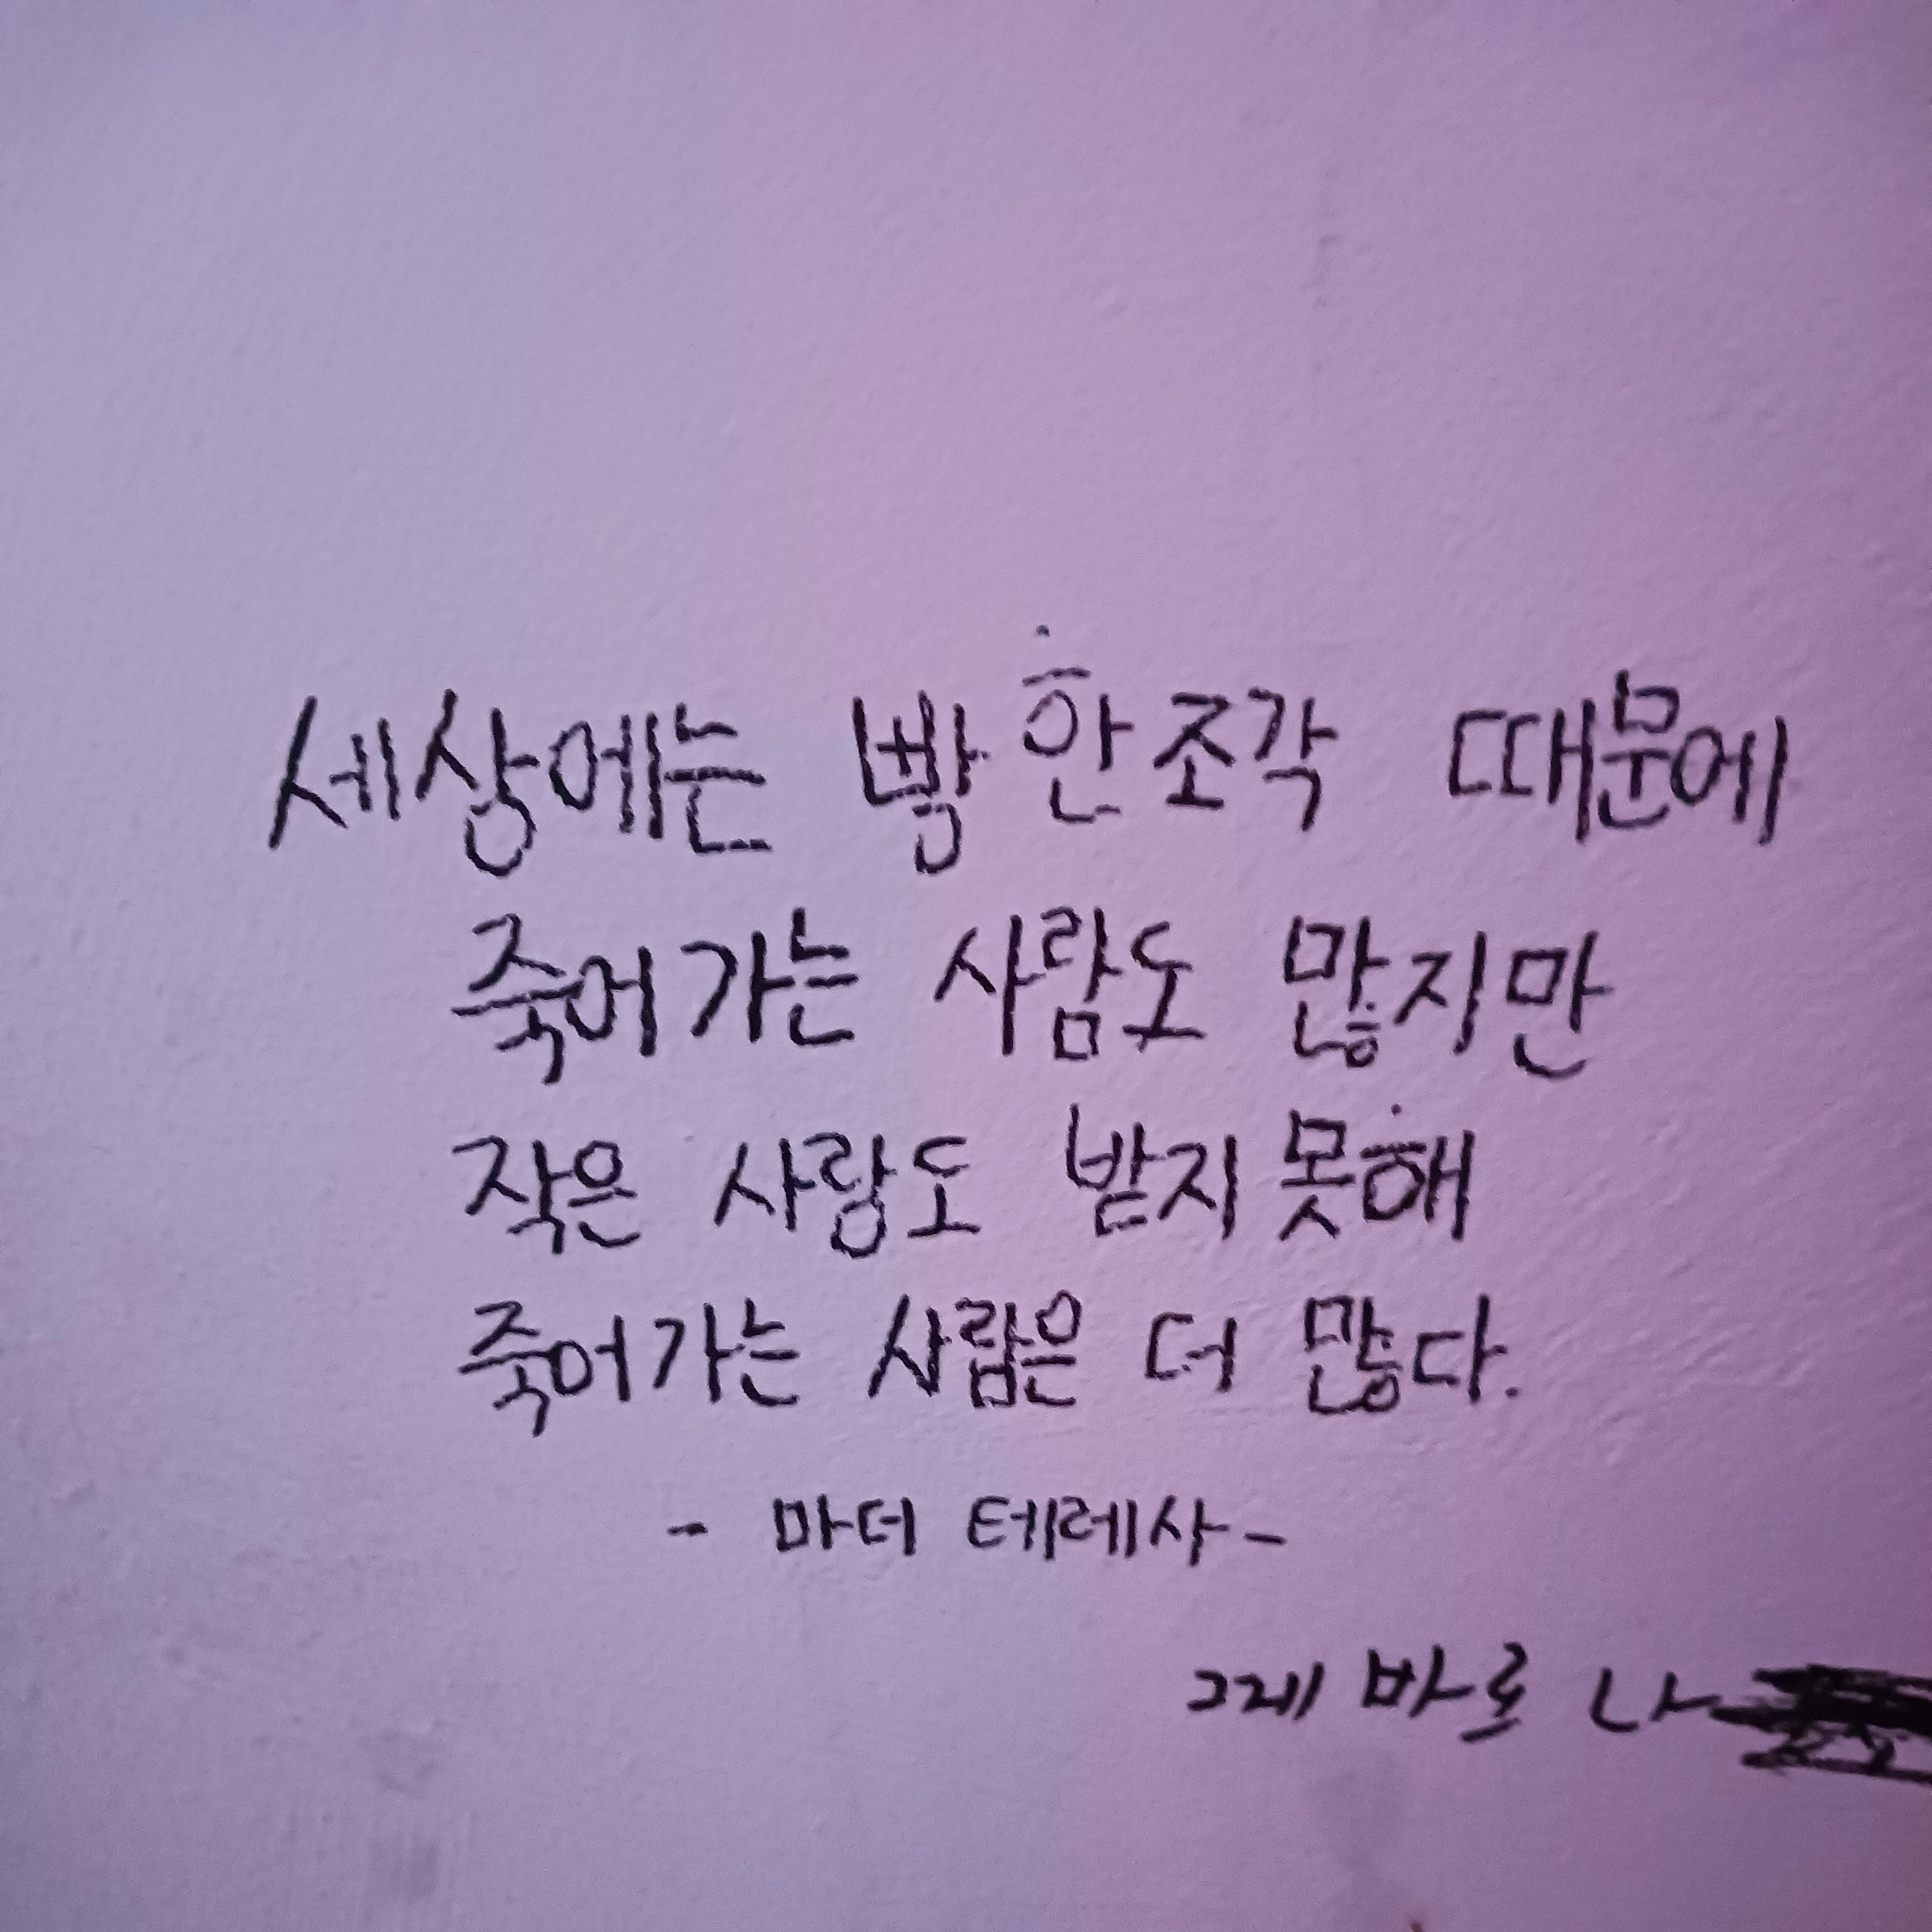 세상에는 빵 한조각 때문에
죽어가는 사람도 많지만
작은 사랑도 받지못해
죽어가는 사람은 더 많다.
- 마더 테레사 -
그게 바로 나